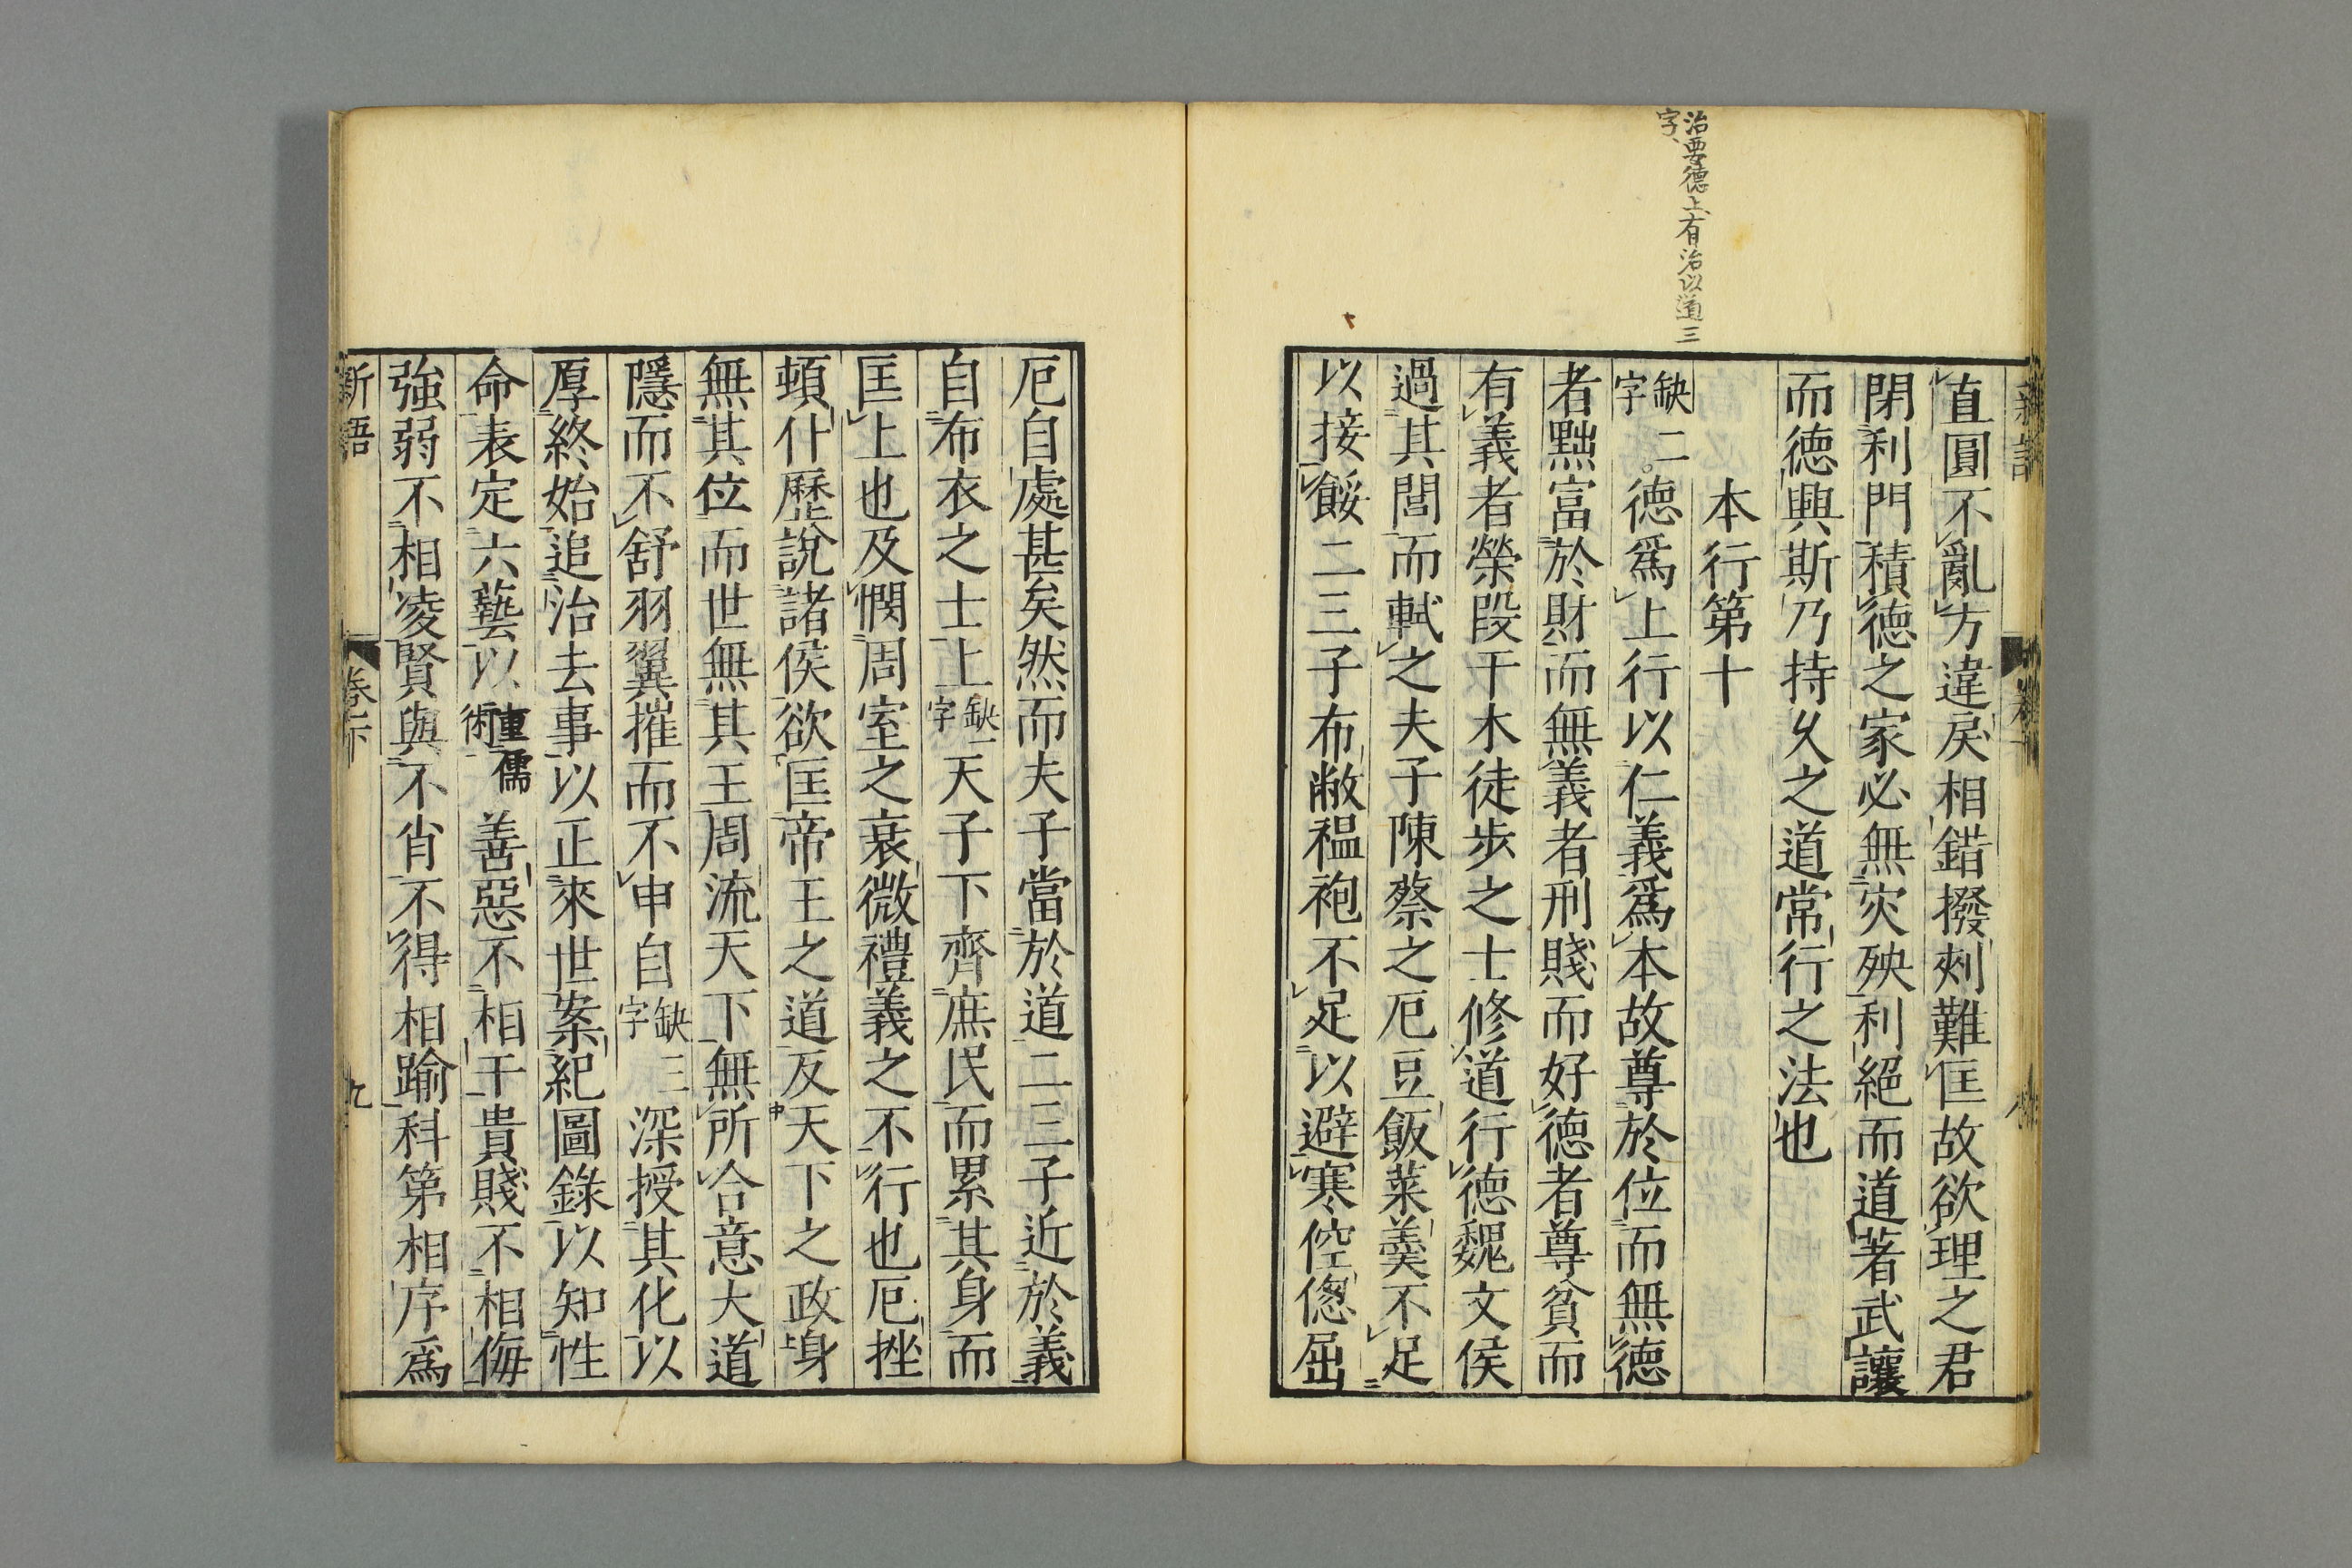 治要德上有治以道三
字
直圓不亂方違戾相錯撥剌難匡故欲理之君
閉利門積德之家必無災殃利絕而道著武讓
而德興斯乃持久之道常行之法也
本行第十
缺二字德爲上行以仁義爲本故尊於位而無德
者黜富於財而無義者刑賤而好德者尊貧而
有義者榮段干木徒步之士修道行德魏文侯
過其閭而軾之夫子陳蔡之厄豆飯菜羹不足
以接餒二三子布敝褞袍不足以避寒倥傯屈
厄自處甚矣然而夫子當於道二三子近於義
自布衣之士上缺一字天子下齊庶民而累其身而
匡上也及憫周室之衰微禮義之不行也厄挫
頓仆歷說諸侯欲匡帝王之道反天下之政身
無其位而世無其王周流天下無所合意大道
隱而不舒羽翼摧而不申自缺三字深授其化以
厚終始追治去事以正來世案紀圖錄以知性
命表定六藝以重儒術善惡不相干貴賤不相侮
強弱不相凌賢與不肖不得相踰科第相序爲
新語 卷下 九